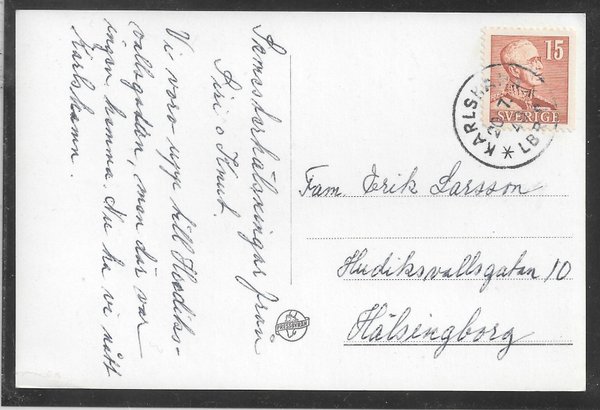 Semesterhälsningar från
Siri o Knut.
Vi voro uppe till Hudiks-
vallsgatan, men där var
ingen hemma. Nu ha vi nått
Karlshamn.
15
SVERIGE
KARLSHAMN
20.7.4
LBR
Fam. Erik Larsson
Hudiksvallsgatan 10
Hälsingborg
PRESSBYRÅN